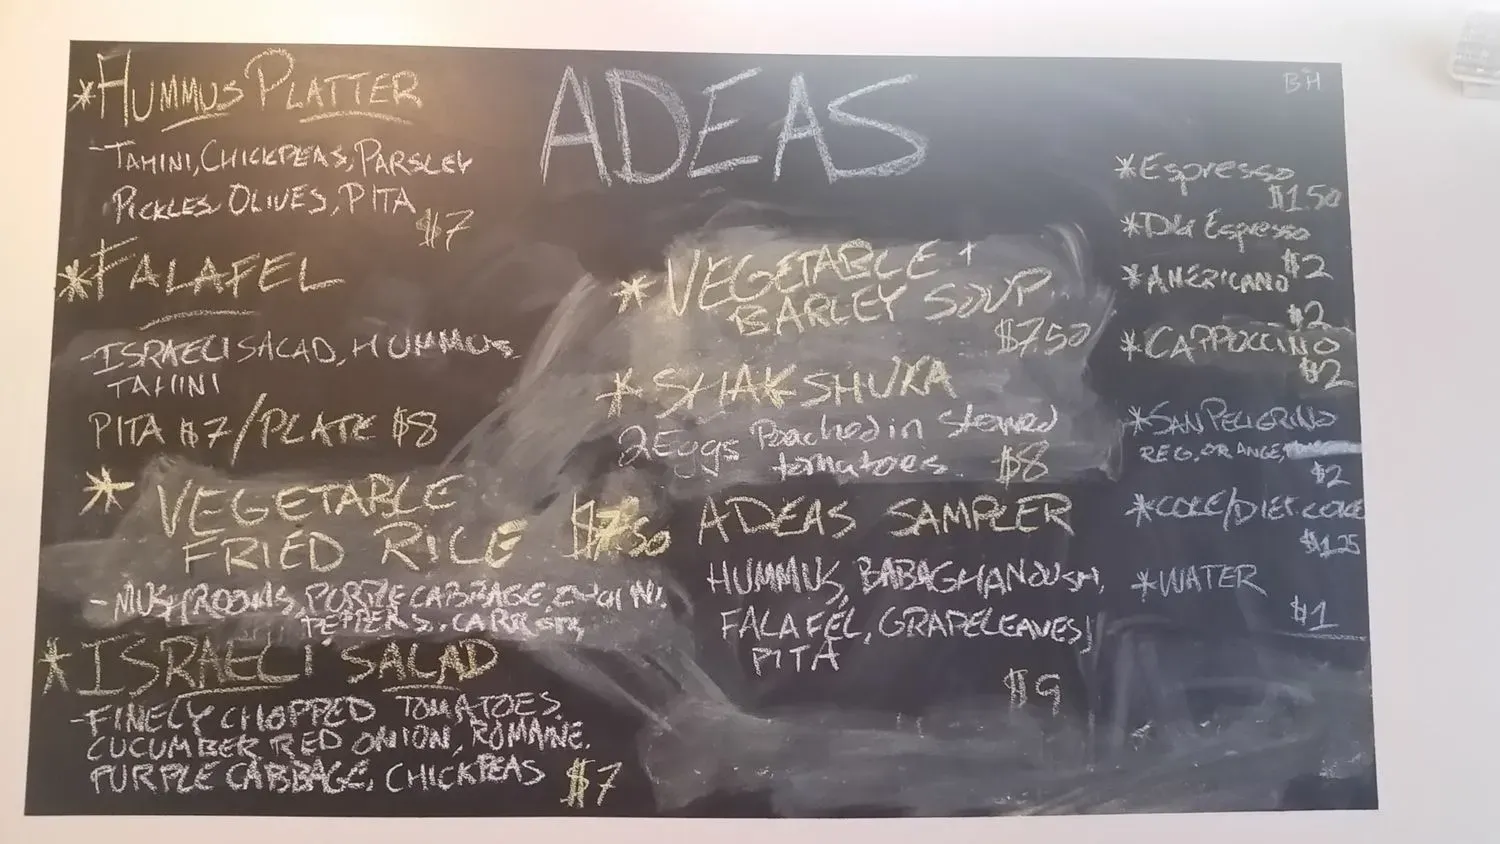 ADEAS
B"H
*HUMMUS PLATTER
-TAHINI, CHICKPEAS, PARSLEY
PICKLES OLIVES, PITA
$7
*FALAFEL
-ISRAELI SALAD, HUMMUS
TAHINI
PITA $7/PLATE $8
*VEGETABLE
FRIED RICE $7.50
-MUSHROOMS, PURPLE CABBAGE,
PEPPERS, CARROTS
*ISRAELI SALAD
-FINELY CHOPPED TOMATOES,
CUCUMBER, RED ONION, ROMAINE,
PURPLE CABBAGE, CHICKPEAS $7
*VEGETABLE +
BARLEY SOUP
$7.50
*SHAKSHUKA
2 Eggs Poached in stewed
tomatoes $8
ADEAS SAMPLER
HUMMUS, BABAGHANOUSH,
FALAFEL, GRAPELEAVES,
PITA
$9
*Espresso
$1.50
*Dbl Espresso
$2
*AMERICANO
$2
*CAPPOCCINO
$2
*SAN PELIGRINO
REG, ORANGE,
$2
*COKE/DIET COKE
$1.25
*WATER
$1